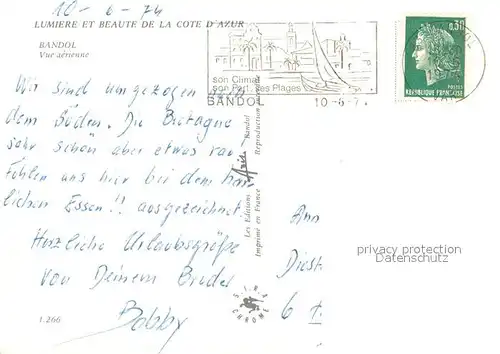 10-6-74
LUMIERE ET BEAUTE DE LA COTE D'AZUR
BANDOL
Vue aérienne
son Climat
son Port, ses Plages
BANDOL
10-6-7
0,30
POSTES
REPUBLIQUE FRANÇAISE
Wir sind umgezogen nach
dem Süden. Die Bretagne
sehr schön aber etwas rau
Fühlen uns hier bei dem herr-
lichen Essen!! ausgezeichnet.
Herzliche Urlaubsgrüße
von Deinem Bruder
Bobby
1.266
Les Editions Aris Bandol
Imprimé en France Reproduction
CHROME
Ann
Diest
6
privacy protection
Datenschutz